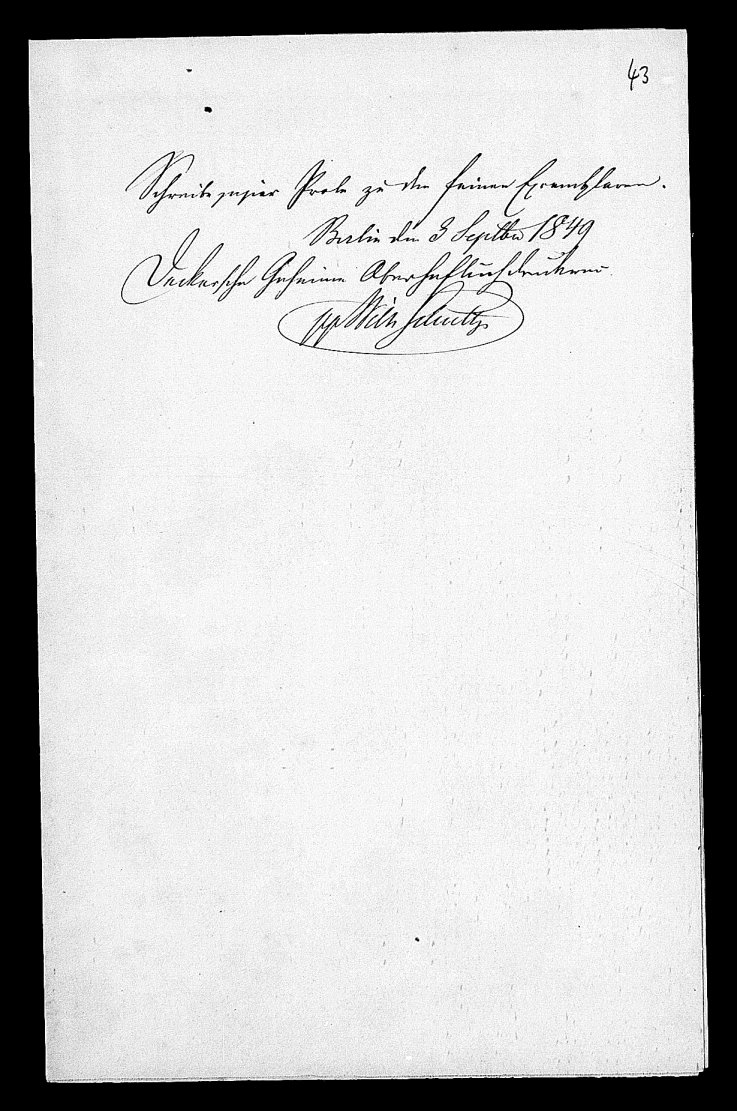 43
Schreibpapier Probe zu den feinen Exemplaren.
Berlin den 3 Septbr 1849
Deckersche Geheime Oberhofbuchdruckerei
pp Wilh Schultz